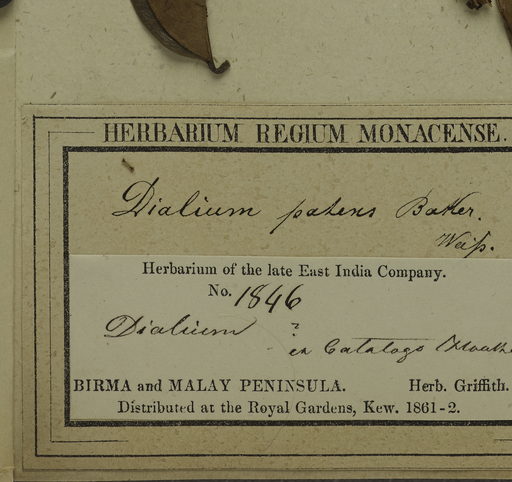 HERBARIUM REGIUM MONACENSE.
Dialium patens Baker.
Herbarium of the late East India Company.
No. 1846
Dialium ?
in Catalogo
BIRMA and MALAY PENINSULA. Herb. Griffith.
Distributed at the Royal Gardens, Kew. 1861-2.